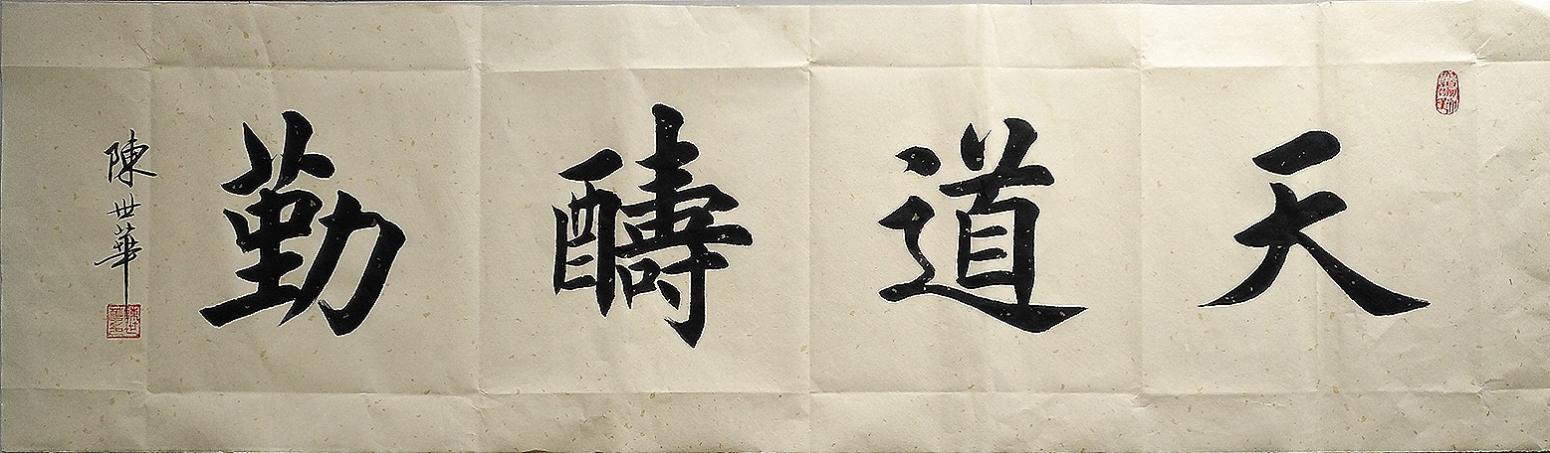 天道醻勤
陳世華